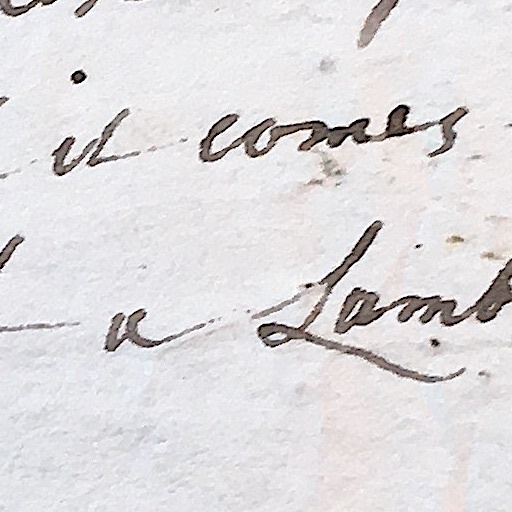 it comes
a Lamb